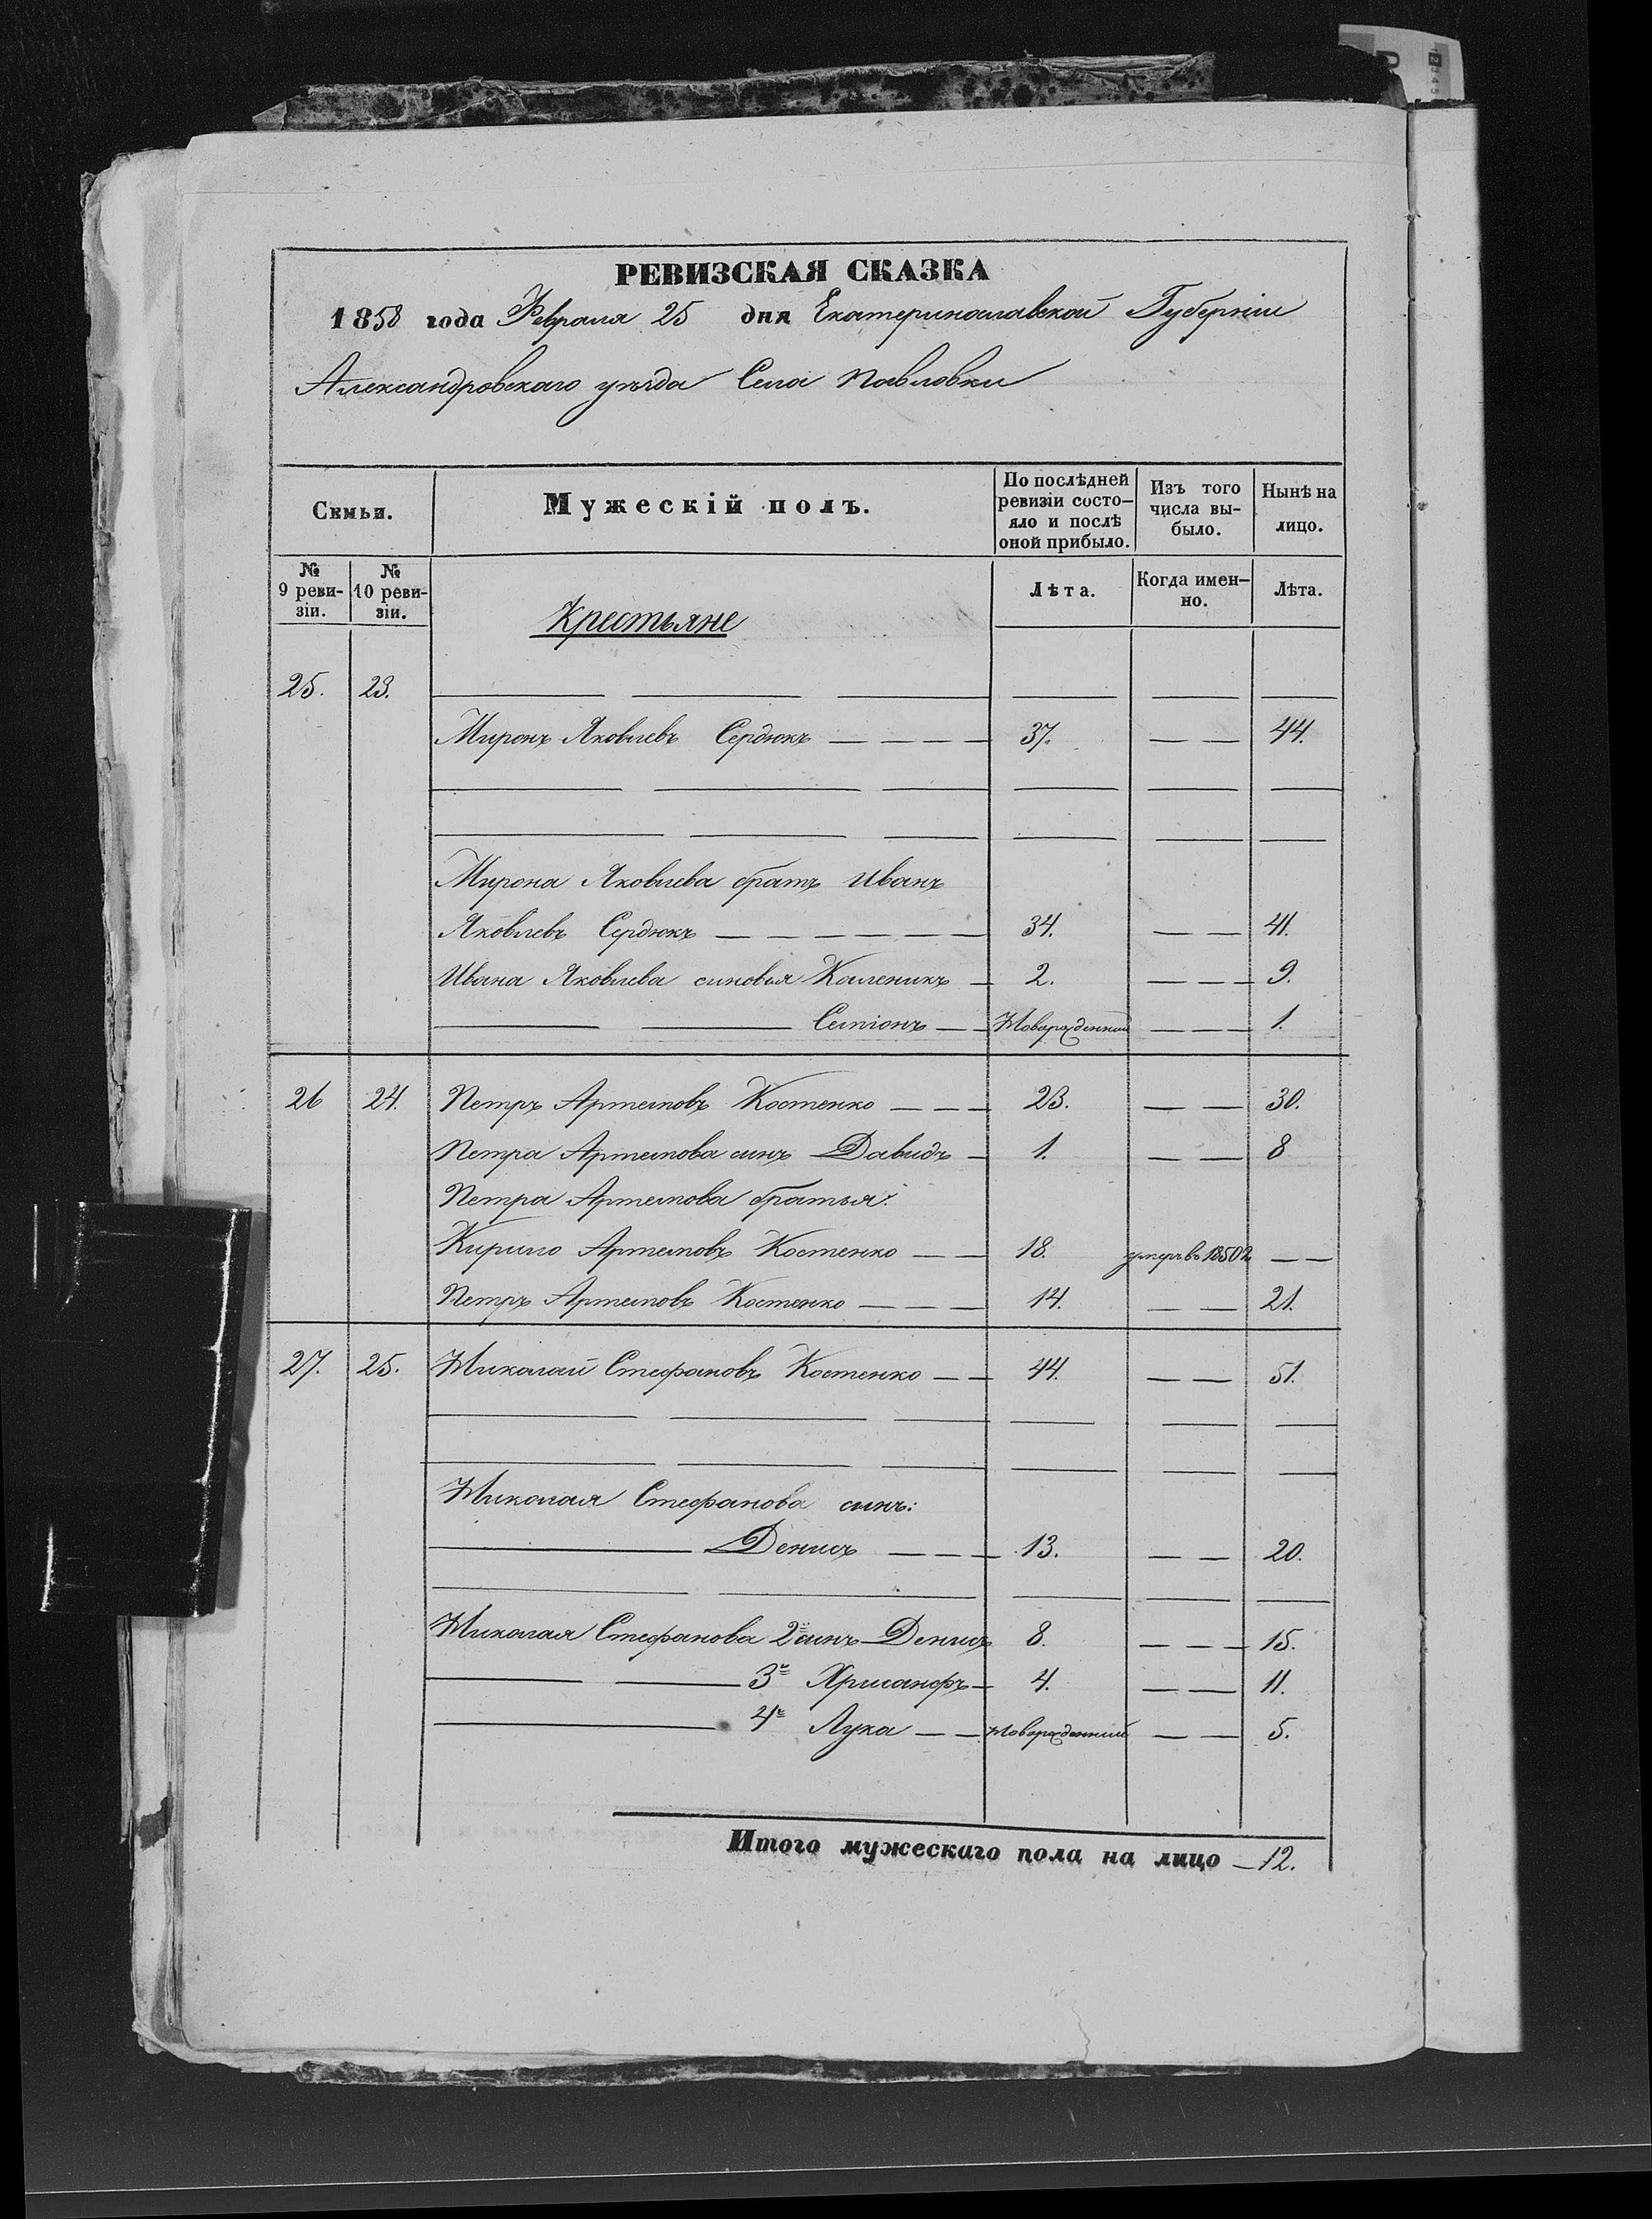 РЕВИЗСКАЯ СКАЗКА
1858 года Февраля 25 дня Екатеринославской Губерніи
Александровскаго уѣзда Села Павловки
Семьи.
Мужескій полъ.
По послѣдней ревизіи состо-
яло и послѣ оной прибыло.
Изъ того числа вы-
было.
Нынѣ на лицо.
№ 9 реви-
зіи.
№ 10 реви-
зіи.
Крестьяне
Лѣта.
Когда имен-
но.
Лѣта.
25. 23.
Миронъ Яковлевъ Сердюкъ 37. 44.
Мирона Яковлева братъ Иванъ
Яковлевъ Сердюкъ 34. 41.
Ивана Яковлева сыновья Каленикъ 2. 9.
Семіонъ Новорожденный 1.
26 24. Петръ Артемовъ Костенко 23. 30.
Петра Артемова сынъ Давидъ 1. 8
Петра Артемова братья:
Кирило Артемовъ Костенко 18. умеръ въ 1850 г.
Петръ Артемовъ Костенко 14. 21.
27. 25. Николай Стефановъ Костенко 44. 51.
Николая Стефанова сынъ:
Денисъ 13. 20.
Николая Стефанова 2й сынъ Денисъ 8. 15.
3й Хрисанфъ 4. 11.
4й Лука Новорожденный 5.
Итого мужескаго пола на лицо 12.